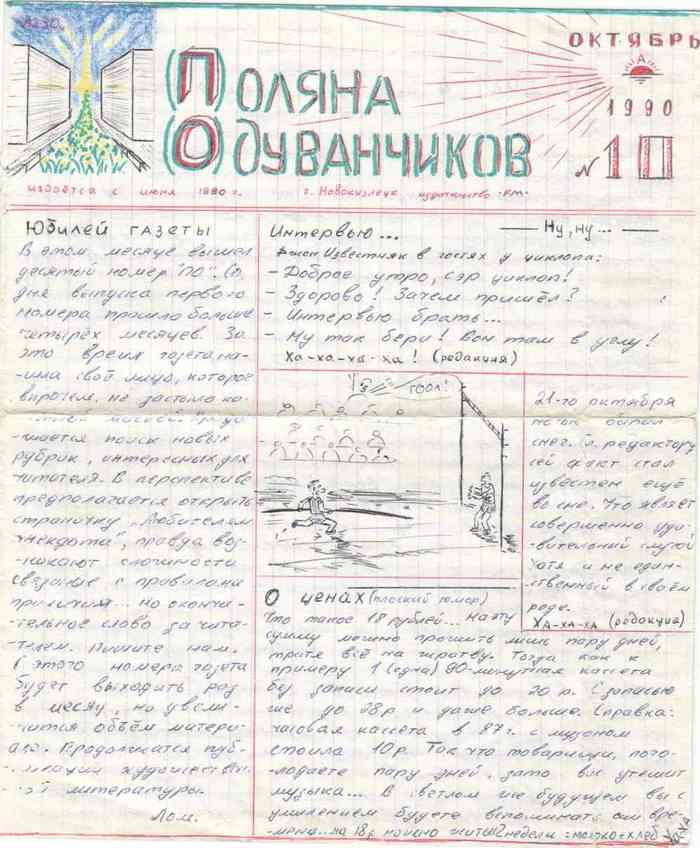 ОКТЯБРЬ
1990
№ 10
Поляна
Одуванчиков
издаётся с июня 1990 г. г. Новокузнецк издательство "FM"
Юбилей газеты
В этом месяце вышел
десятый номер "ПО". Со
дня выпуска первого
номера прошло больше
четырёх месяцев. За
это время газета на-
-шла своё лицо, которое
впрочем, не застыло
-лжается поиск новых
рубрик, интересных для
читателя. В перспективе
предполагается открыть
страничку "Любителям
анекдота", правда воз-
-никают сложности
связанные с правилами
приличия... но оконча-
-тельное слово за чита-
-телем. Пишите нам.
С этого номера газета
будет выходить раз
в месяц, но увели-
-чится объём матери-
ала. Продолжатся пуб-
-ликации художествен-
-ной литературы.
Лом.
Интервью... Ну, ну...
Джон Известняк в гостях у циклопа:
- Доброе утро, сэр циклоп!
- Здорово! Зачем пришёл?
- Интервью брать...
- Ну так бери! Вон там в углу!
Ха-ха-ха-ха! (редакция)
ГООЛ!
21-го октября
выпал
снег. Гл. редактору
сей факт стал
известен ещё
во сне. Что являет
совершенно уди-
-вительный случай
хотя и не един-
-ственный в своём
роде.
Ха-ха-ха (редакция)
О ценах (плоский юмор)
Что такое 18 рублей... На эту
сумму можно прожить лишь пару дней,
тратя всё на жратву. Тогда как к
примеру 1 (одна) 90-минутная кассета
без записи стоит до 20 р. С записью
же до 28р и даже больше. Справка:
часовая кассета в 87г. с музоном
стоила 10р. Так что товарищи, пого-
-лодаете пару дней, зато вас утешит
музыка... В светлом же будущем вы с
умилением будете вспоминать эти вре-
-мена... на 18р можно жить 2 недели = молоко + хлеб
Ха-ха